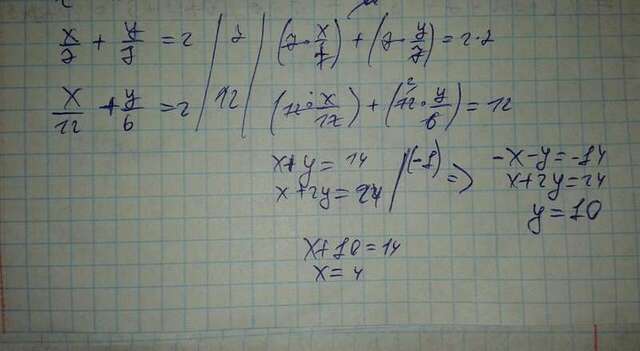 x/7 + y/7 = 2 | 7 | (7 · x/7) + (7 · y/7) = 2 · 7
x/12 + y/6 = 2 | 12 | (12 · x/12) + (12 · y/6) = 12
x + y = 14 | (-1) => -x - y = -14
x + 2y = 24 x + 2y = 24
y = 10
x + 10 = 14
x = 4